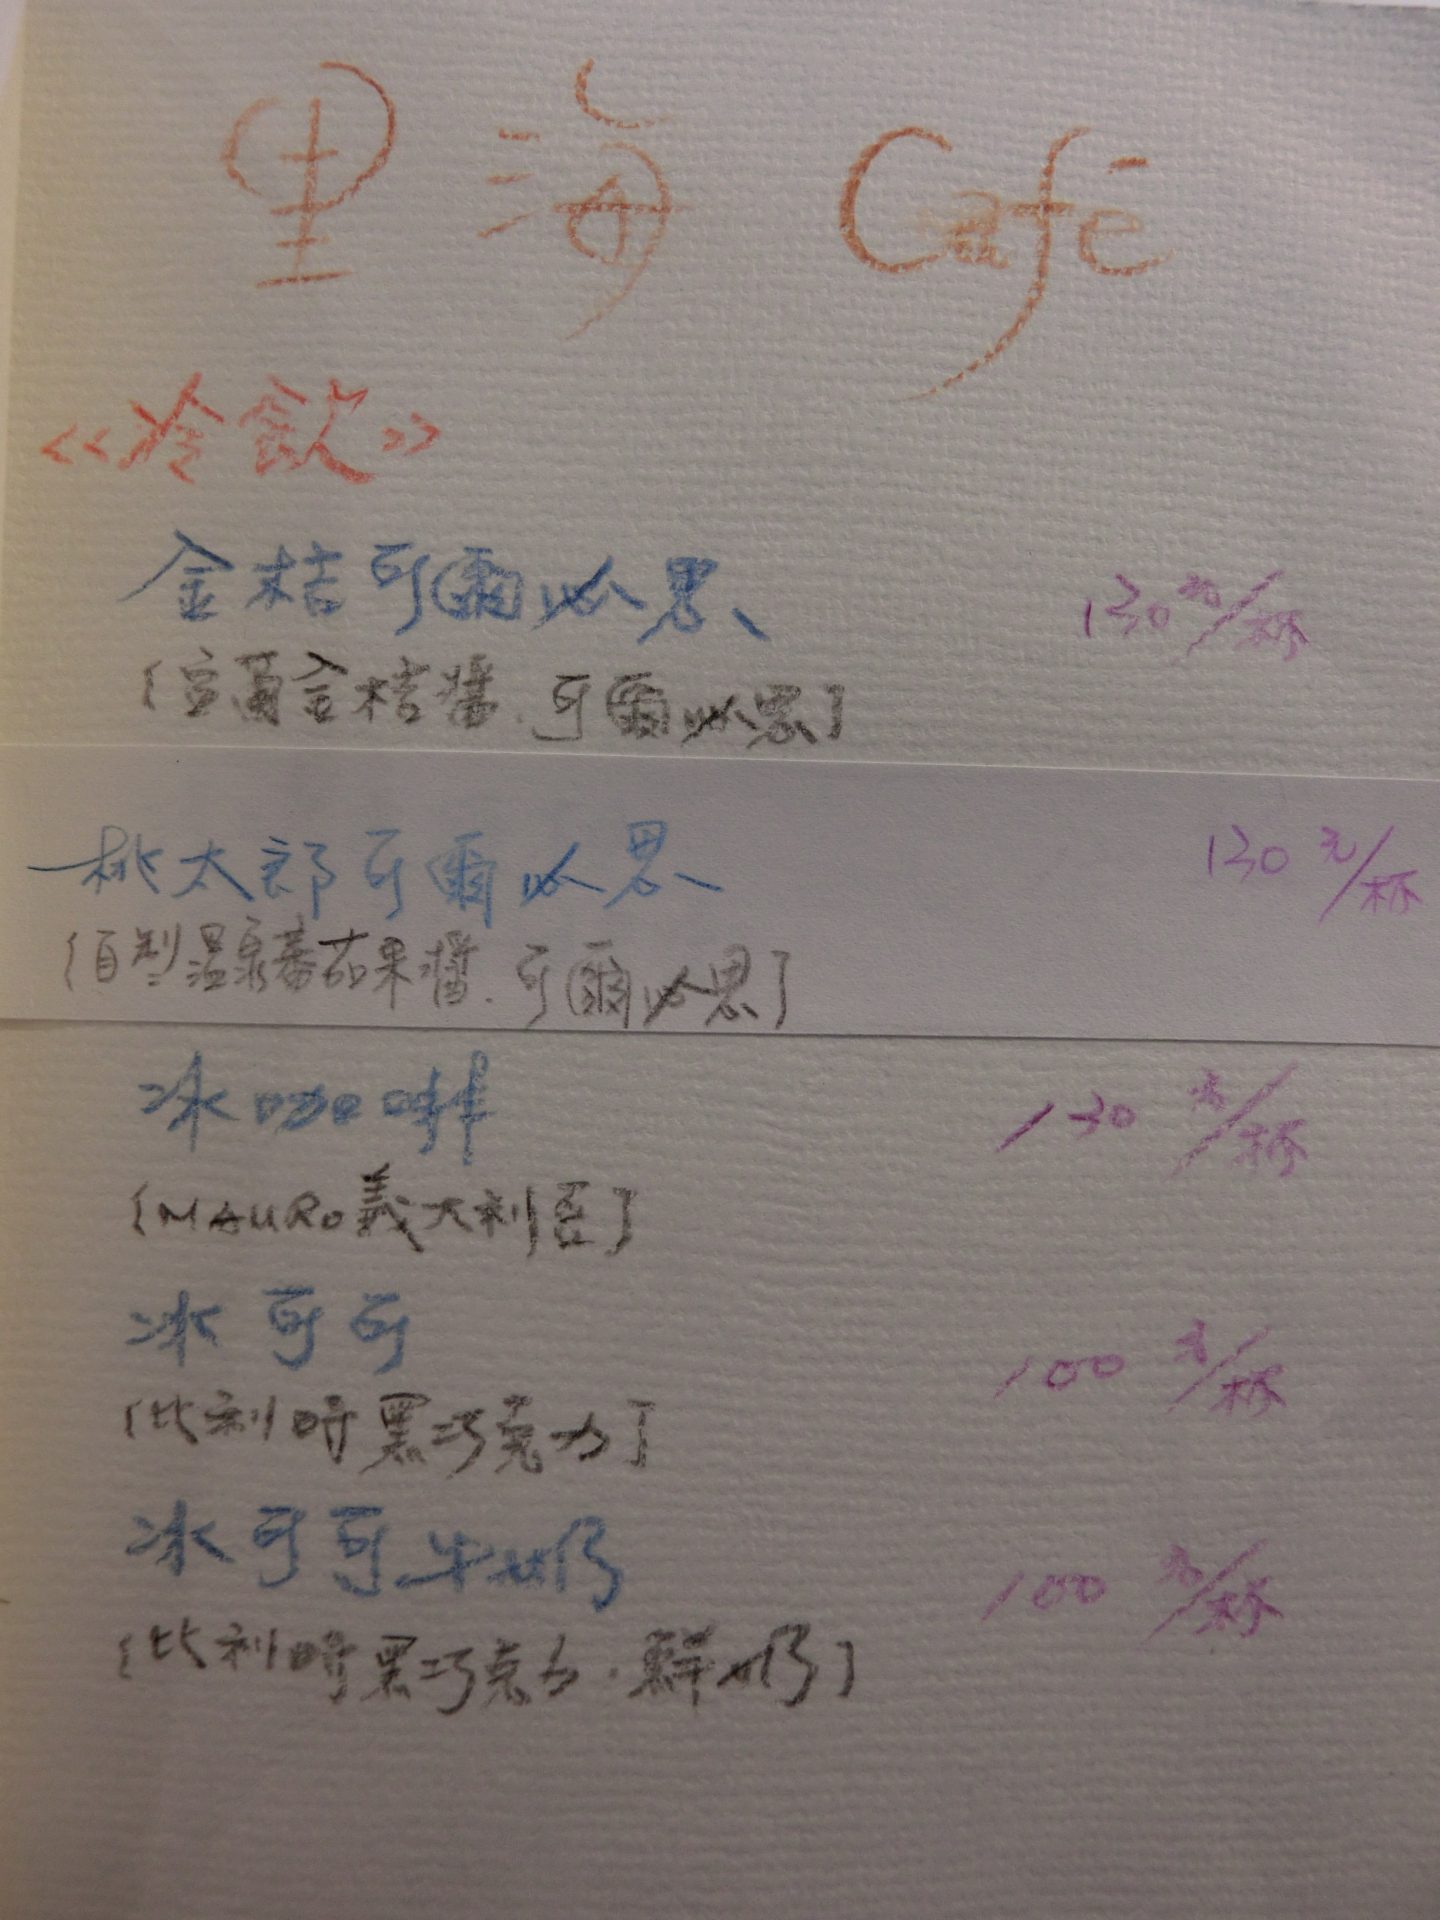 里海 Café
《冷飲》
金桔可爾必思 130元/杯
[宜蘭金桔醬.可爾必思]
桃太郎可爾必思 130元/杯
[自製溫泉蕃茄果醬.可爾必思]
冰咖啡 130元/杯
[MAURO義大利豆]
冰可可 100元/杯
[比利時黑巧克力]
冰可可牛奶 100元/杯
[比利時黑巧克力.鮮奶]